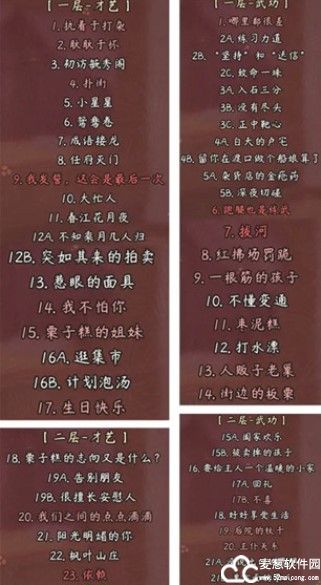 【一层-才艺】
1. 执着于打架
2. 耿耿于怀
3. 初访毓秀阁
4. 扑街
5. 小星星
6. 鸳鸯卷
7. 成语接龙
8. 任府天门
9. 我发誓，这会是最后一次
10. 大忙人
11. 春江花月夜
12A. 不知乘月几人归
12B. 突如其来的拍卖
13. 惹眼的面具
14. 我不怕你
15. 栗子糕的姐妹
16A. 逛集市
16B. 计划泡汤
17. 生日快乐
【二层-才艺】
18. 栗子糕的志向又是什么？
19A. 告别朋友
19B. 很擅长安慰人
20. 我们之间的点点滴滴
21. 阳光明媚的你
22. 枫叶山庄
23. 依赖
【一层-武功】
1. 哪里都很差
2A. 练习力道
2B. "坚持" 和 "迷信"
2C. 救命一味
3A. 入石三分
3B. 没有尽头
3C. 正中靶心
4A. 白天的卢宅
4B. 留你在渡口做个船娘算了
5A. 杂货店的金疮药
5B. 深夜切磋
6. 跑腿也是练武
7. 拔河
8. 红拂场罚跪
9. 一根筋的孩子
10. 不懂变通
11. 枣泥糕
12. 打水漂
13. 人贩子老巢
14. 街边的板栗
【二层-武功】
15A. 阖家欢乐
15B. 被卖掉的孩子
16. 要给主人一个温暖的小家
17A. 回礼
17B. 不喜
18. 好好享受生活
19. 后院的蚊子
20. 主仆关系
麦葱软件网
www.52maicong.com